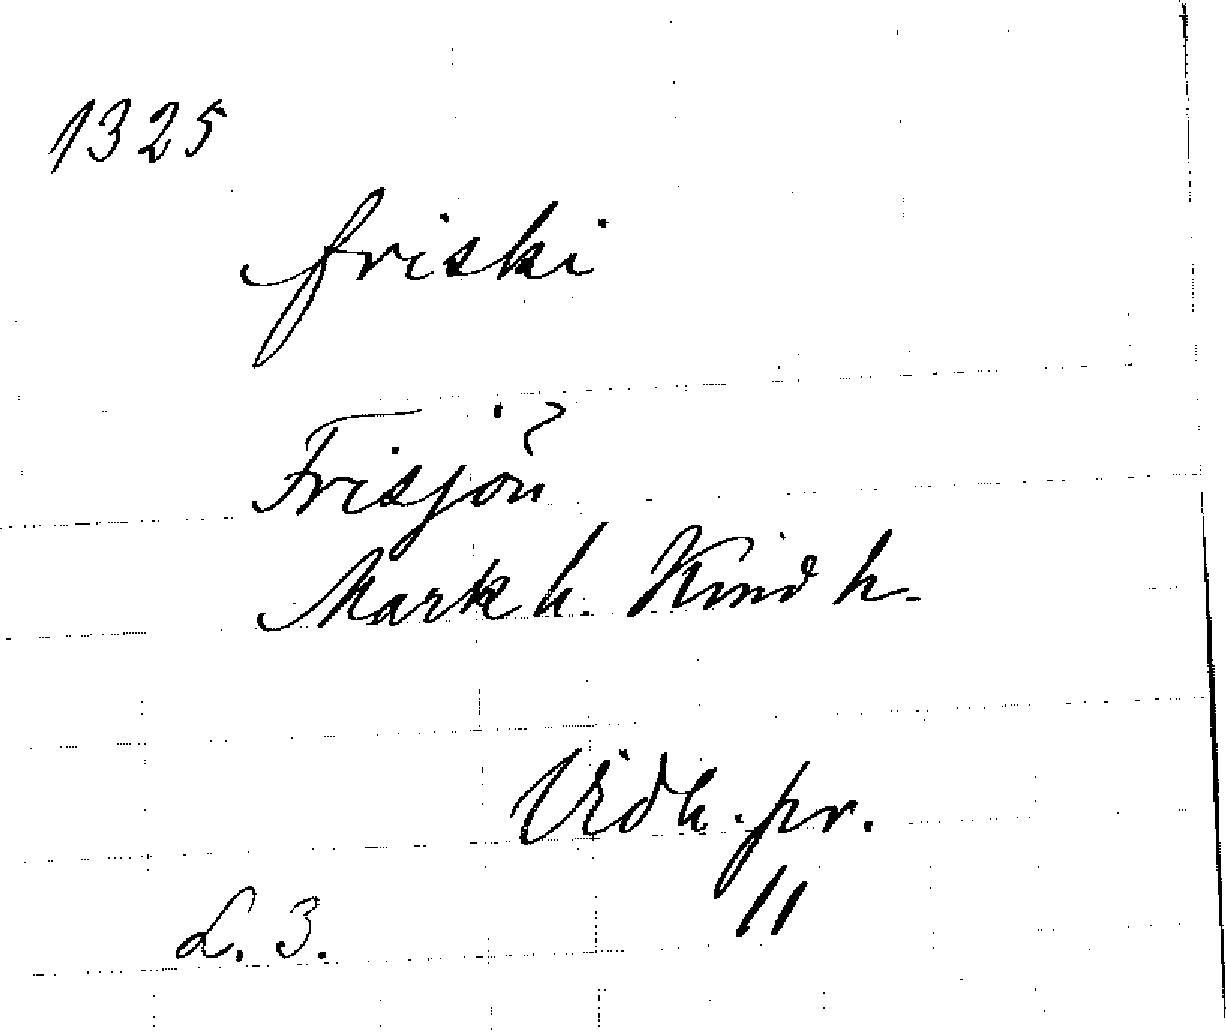 1325
friski
Frisjön
Mark h. Kind h.
Vidh. pr.
11
L. 3.